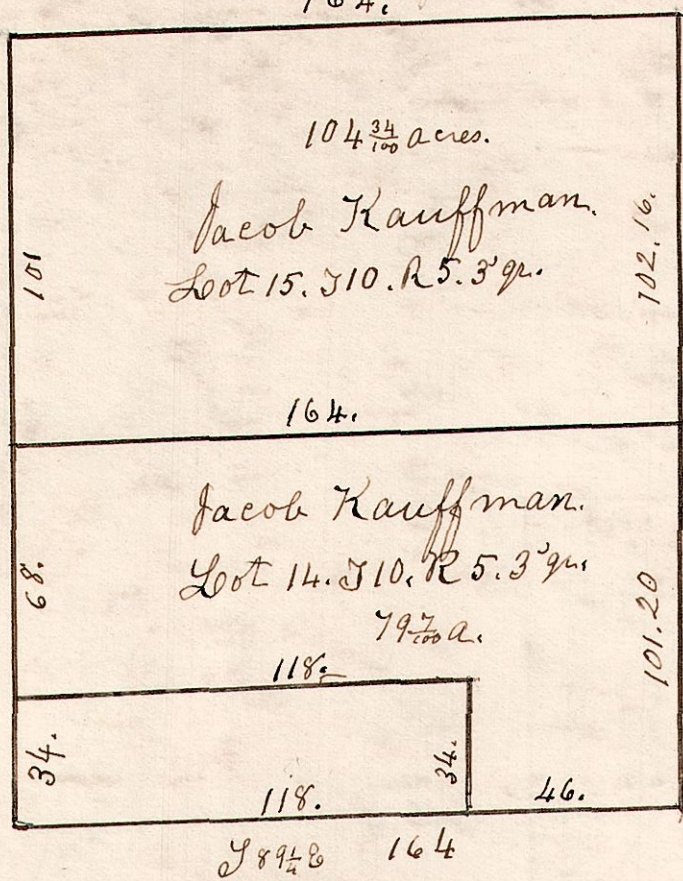 164.
104 34/100 acres.
Jacob Kauffman.
Lot 15. T10. R 5. 3 qr.
101
102.16.
164.
Jacob Kauffman.
Lot 14. T10. R 5. 3 qr.
79 7/100 a.
68.
101.20
118.
34.
34.
118.
46.
S 89 1/4 E 164